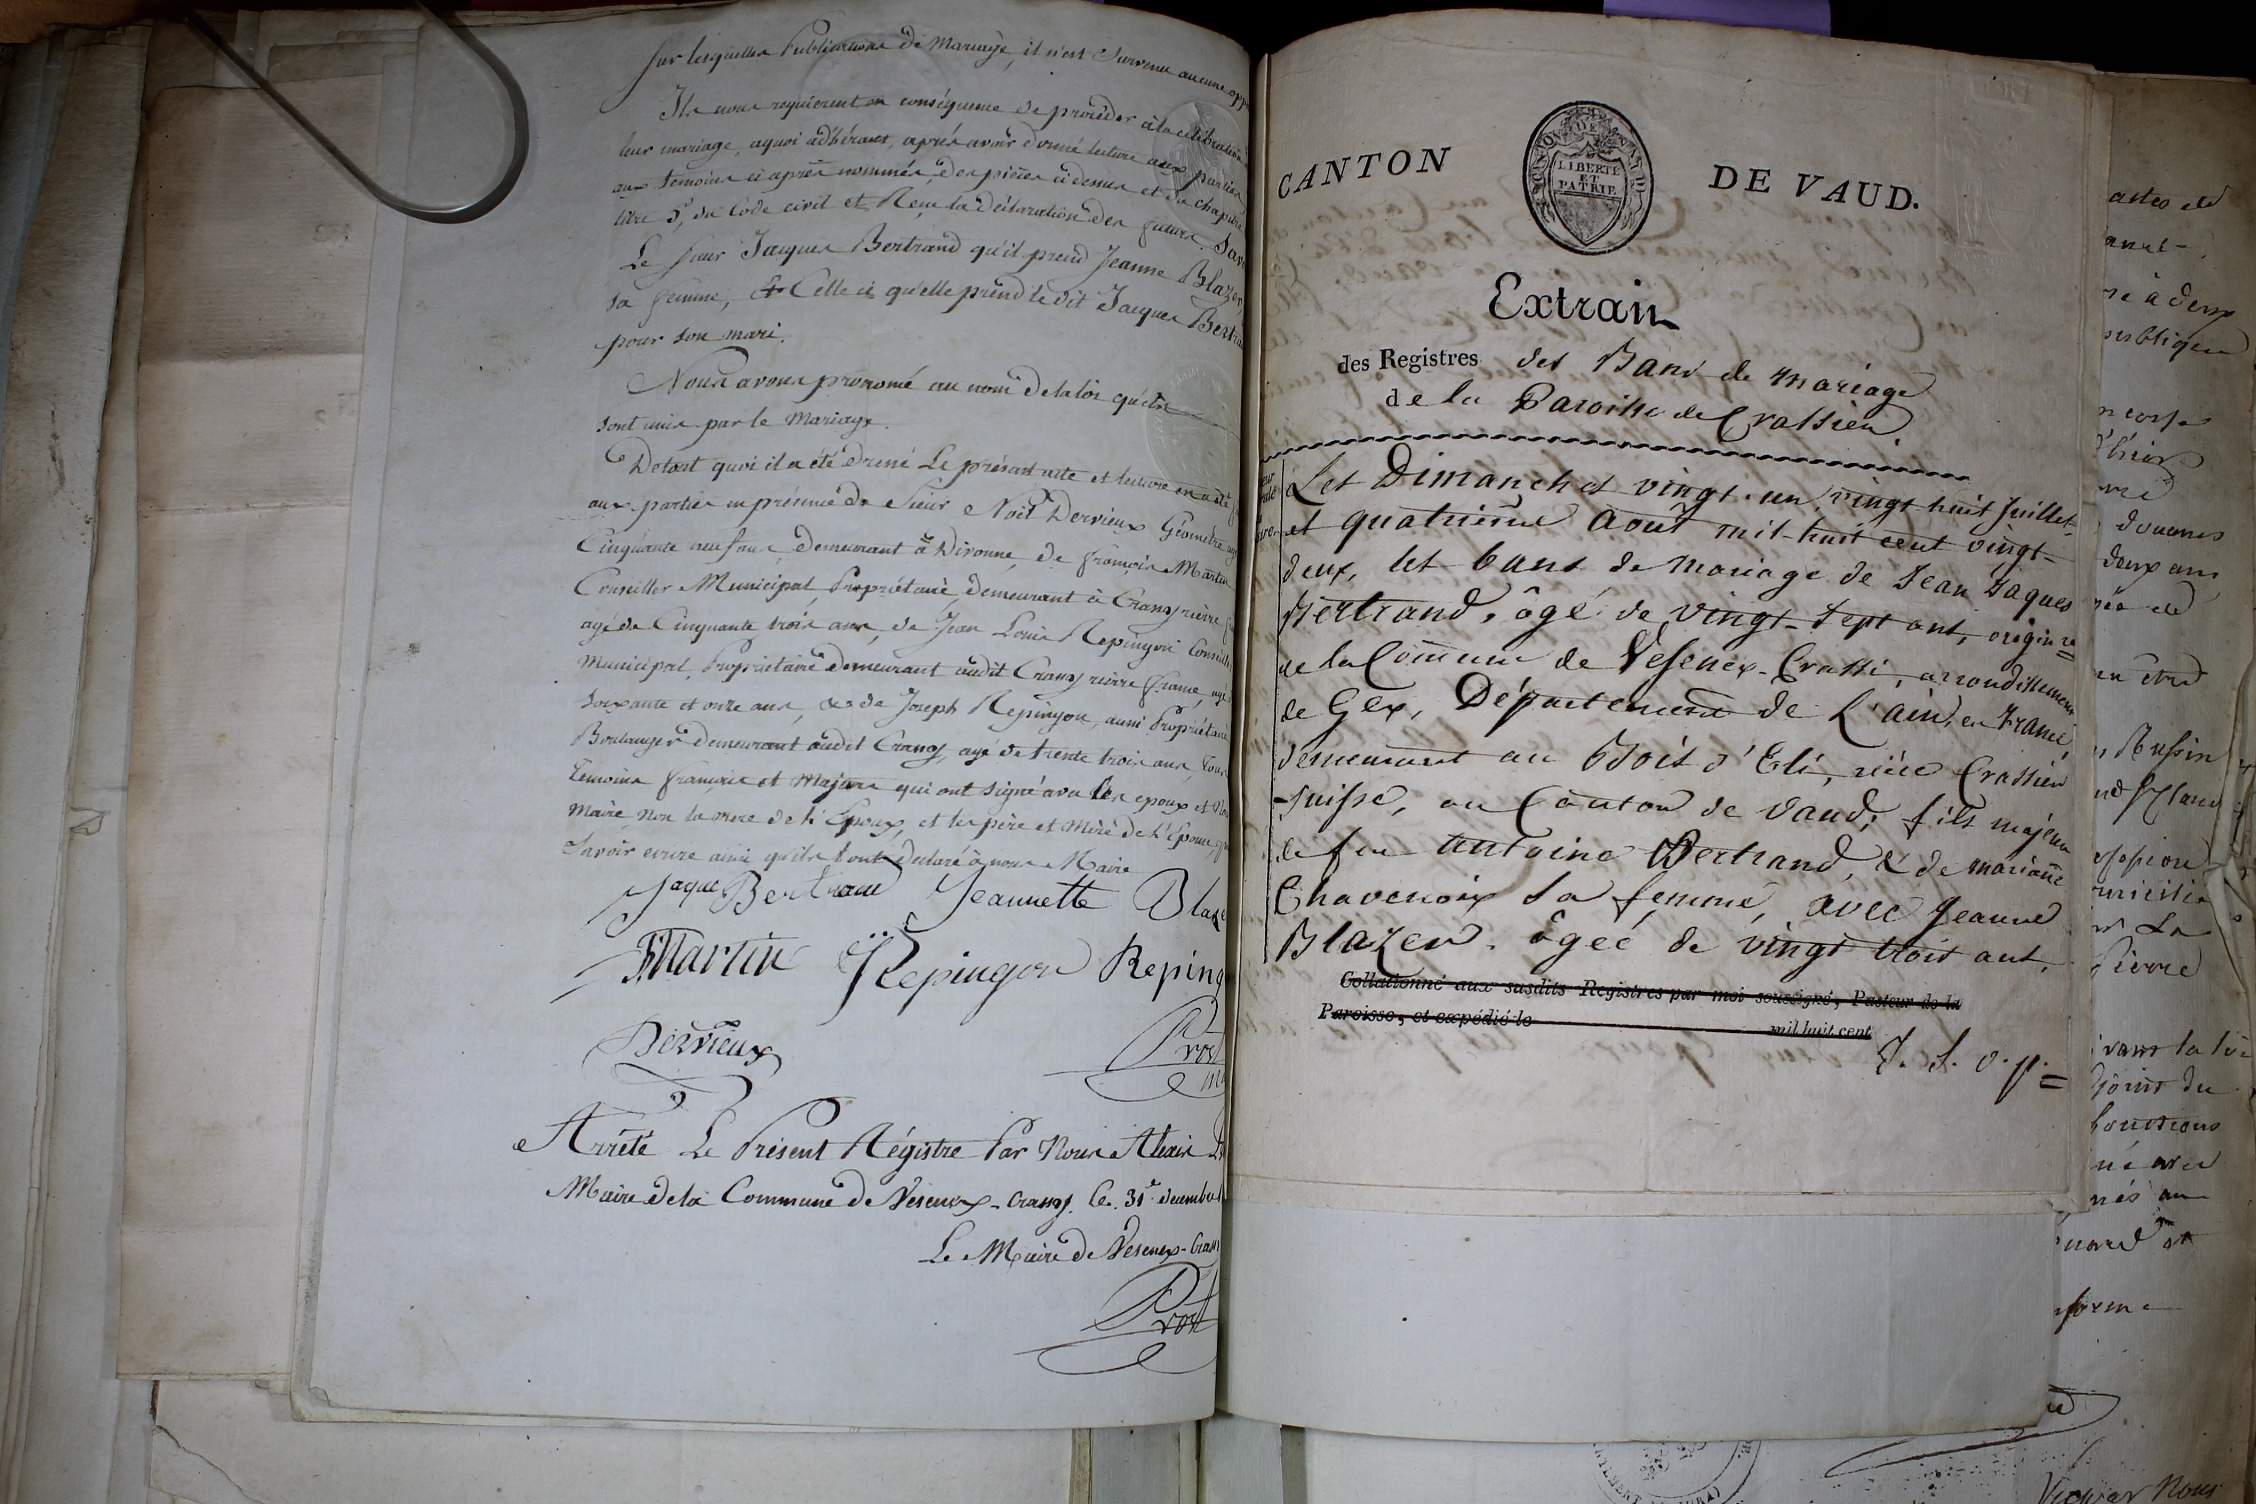 sur lesquelles Publications de Mariage, il n'est Survenu aucune opp
Ils nous requierent en conséquence de procéder à la célébration
leur mariage, aquoi adhérant, après avoir donné lecture aux parties
aux temoins ci après nommés, des pièces ci dessus et du chapitre
titre 5e, du Code civil et Reçu la déclaration des futurs. Savo
Le sieur Jacques Bertrand qu'il prend Jeanne Blazer,
sa femme, & Celle ci qu'elle prend le dit Jacques Bertra
pour son mari.
Nous avons prononcé au nom de la loi qu'ils
sont unis par le Mariage.
De tout quoi il a été dressé Le présent acte et lecture en a été
aux parties en présence de Sieur Noël Dervieux Géomètre agé
Cinquante neuf ans, demeurant à Divonne, de françois Martin
Conseiller Municipal, Propriétaire, demeurant à Crassy rière
agé de Cinquante trois ans, de Jean Louis Repingon Conseill
Municipal, Propriétaire demeurant audit Crassy rière france, agé
soixante et onze ans, & de Joseph Repingon, aussi Propriétaire
Boulanger demeurant audit Crassy, agé de trente trois ans, Tous
temoins français et Majeurs qui ont signé avec les epoux et Nous
Maire, Non la mere de l'Epoux, et les père et Mère de l'Epouse, p
Savoir ecrire ainsi qu'ils l'ont declaré à nous Maire
Jaque Bertrand Jeannette Blaze
F Martin JL Repingon Reping
Dervieux Prost
Arrêté Le Présent Régistre Par Nous Alexis
Maire de la Commune de Vesenex-Crassy. Ce. 31e. decembre
Le Maire de Vesenex-Crass
Prost
CANTON DE VAUD.
CANTON DE VAUD
LIBERTÉ
ET
PATRIE
Extrait
des Registres des Bans de mariage
de la Paroisse de Crassier.
Les Dimanches vingt-un, vingt huit Juillet
et quatrième Août mil-huit cent vingt-
deux, les bans de mariage de Jean Jaques
Bertrand, âgé de vingt-sept ans, originre
de la Commune de Vesenex-Crassi, arrondissement
de Gex, Département de L'ain, en France,
demeurant au Bois d'Eli, rière Crassier
Suisse, au Canton de Vaud, fils majeur
de feu Antoine Bertrand, & de marianne
Chavenoix sa femme, avec Jeanne
Blazer, âgée de vingt trois ans,
Collationné aux susdits Registres par moi soussigné, Pasteur de la
Paroisse, et expédié le mil huit cent
T. S. v. p.
actes de
à deux
publique
corps
douanes
deux ans
Russin
profession
domicilié
La
Pierre
devant la
adjoint du
fonctions
forme
Nous